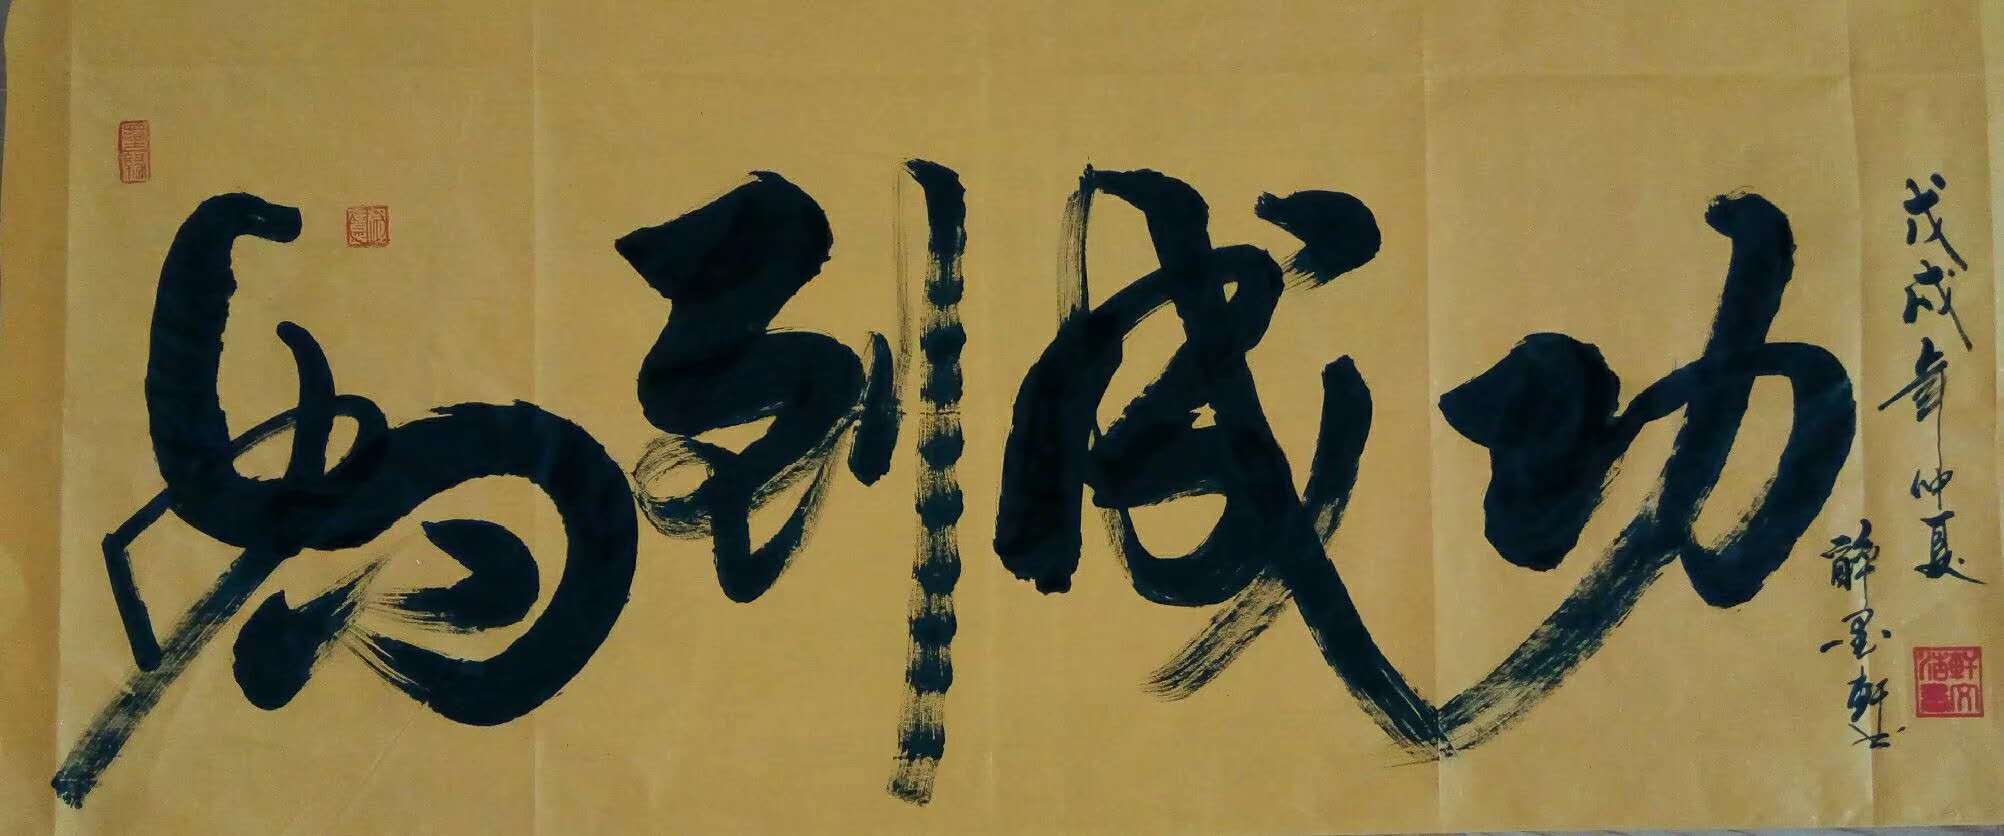 马到成功
戊戌年仲夏
薛墨轩书